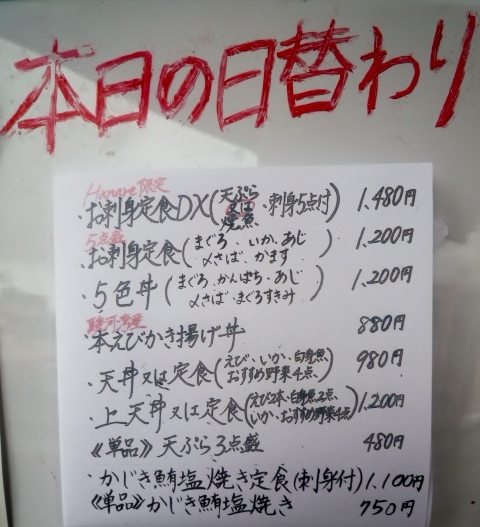 本日の日替わり
Hanare限定
・お刺身定食DX(天ぷら又は焼魚・刺身5点付) 1,480円
5点盛
・お刺身定食(まぐろ、いか、あじ 〆さば、かます) 1,200円
・5色丼(まぐろ、かんぱち・あじ 〆さば・まぐろすきみ) 1,200円
駿河湾産
・本えびかき揚げ丼 880円
・天丼又は定食(えび、いか、白身魚、おすすめ野菜4点、) 980円
・上天丼又は定食(えび2本、白身魚2点、いか、おすすめ野菜4点) 1,200円
《単品》天ぷら3点盛 480円
・かじき鮪塩焼き定食(刺身付) 1,100円
《単品》かじき鮪塩焼き 750円